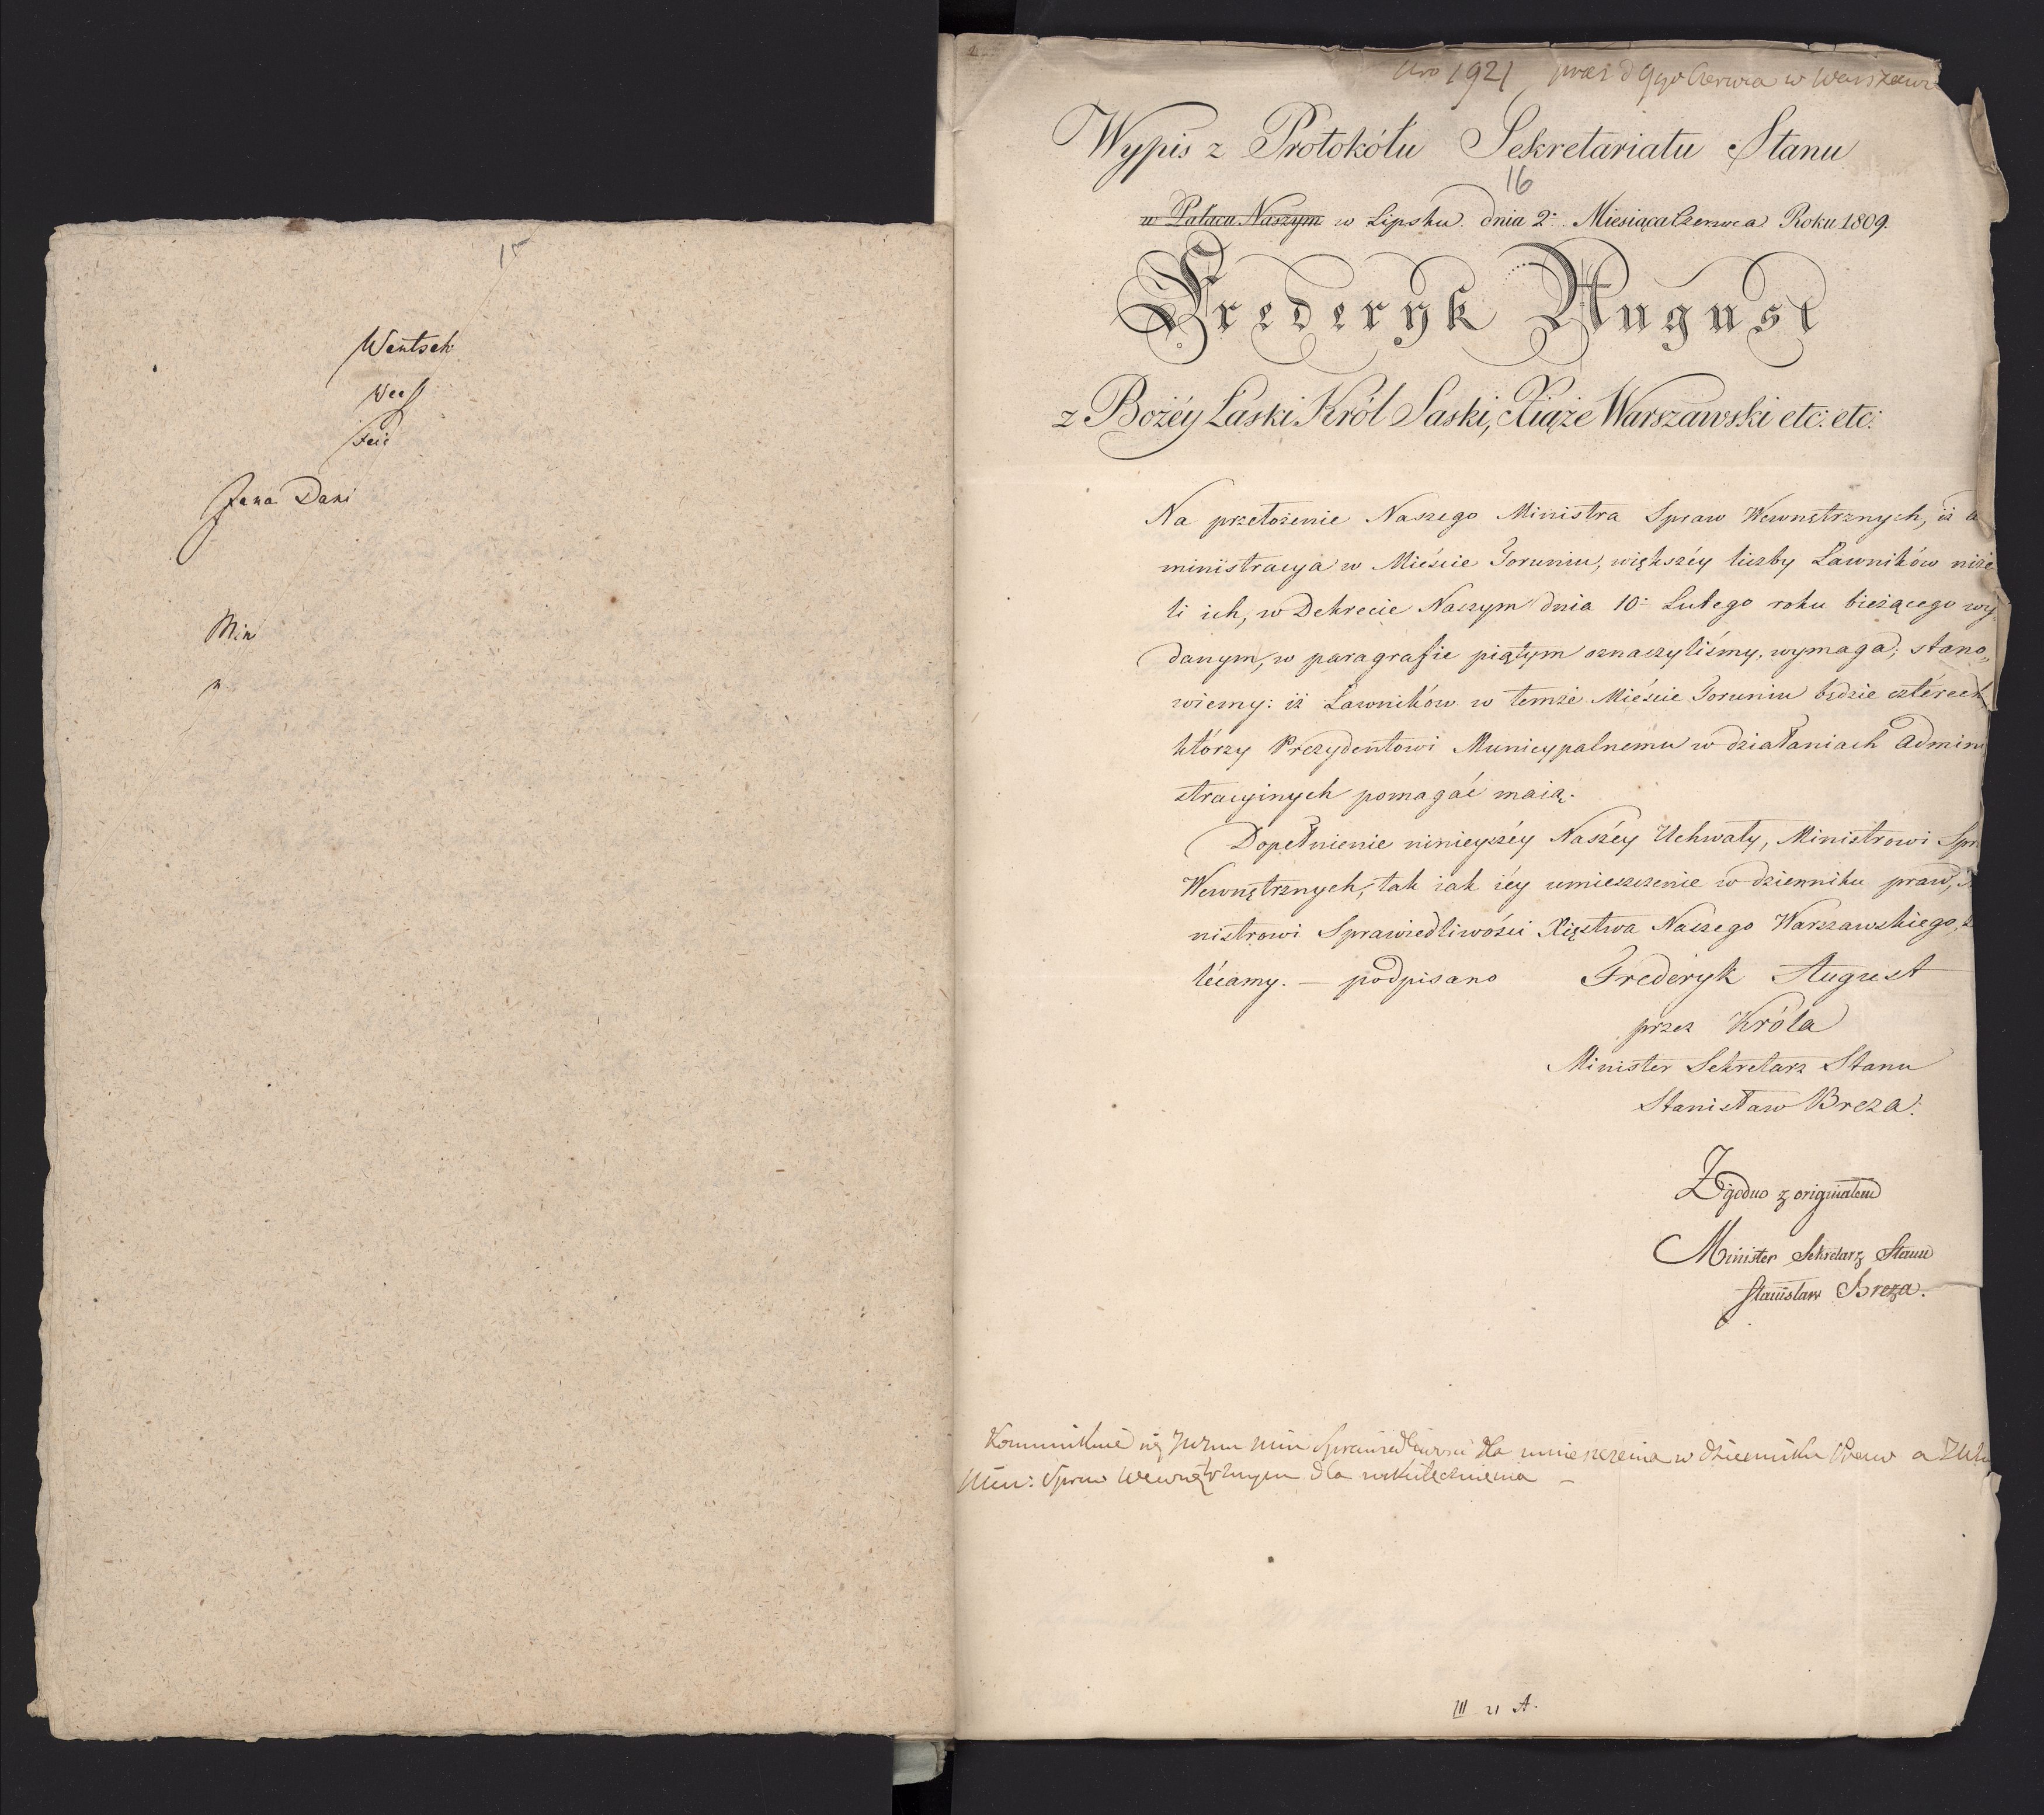 15
Wentsch
Jana Dani
Min
Nro 1921 praes d 9go Czerwca w Warszawie
Wypis z Protokółu Sekretariatu Stanu
16
w Pałacu Naszym w Lipsku. dnia 2. Miesiąca Czerwca Roku 1809.
Frederyk August
z Bożéy Łaski Król Saski, Xiąże Warszawski etc: etc:
Na przełożenie Naszego Ministra Spraw Wewnętrznych, iż
ministracya w Mieście Toruniu, większéy liczby Ławników niże
li ich, w Dekrecie Naszym dnia 10. Lutego roku bieżącego wy
danym, w paragrafie piątym oznaczyliśmy, wymaga; stano„
wiemy: iż Ławników w temże Mieście Toruniu będzie cztérech
którzy Prezydentowi Municypalnemu w działaniach admini
stracyinych pomagać maią.
Dopełnienie ninieyszéy Naszéy Uchwały, Ministrowi Spr
Wewnętrznych, tak iak iéy umieszczenie w dzienniku praw,
nistrowi Sprawiedliwości Xięstwa Naszego Warszawskiego,
lécamy. — podpisano Frederyk August
przez Króla
Minister Sekretarz Stanu
Stanisław Breza.
Zgodno z originałem
Minister Sekretarz Stanu
Stanisław Breza.
Min Sprawiedliwości dla umieszczenia w dzienniku Praw a
Min: Spraw Wewnętrznym dla uskutecznienia —
III 21 A.